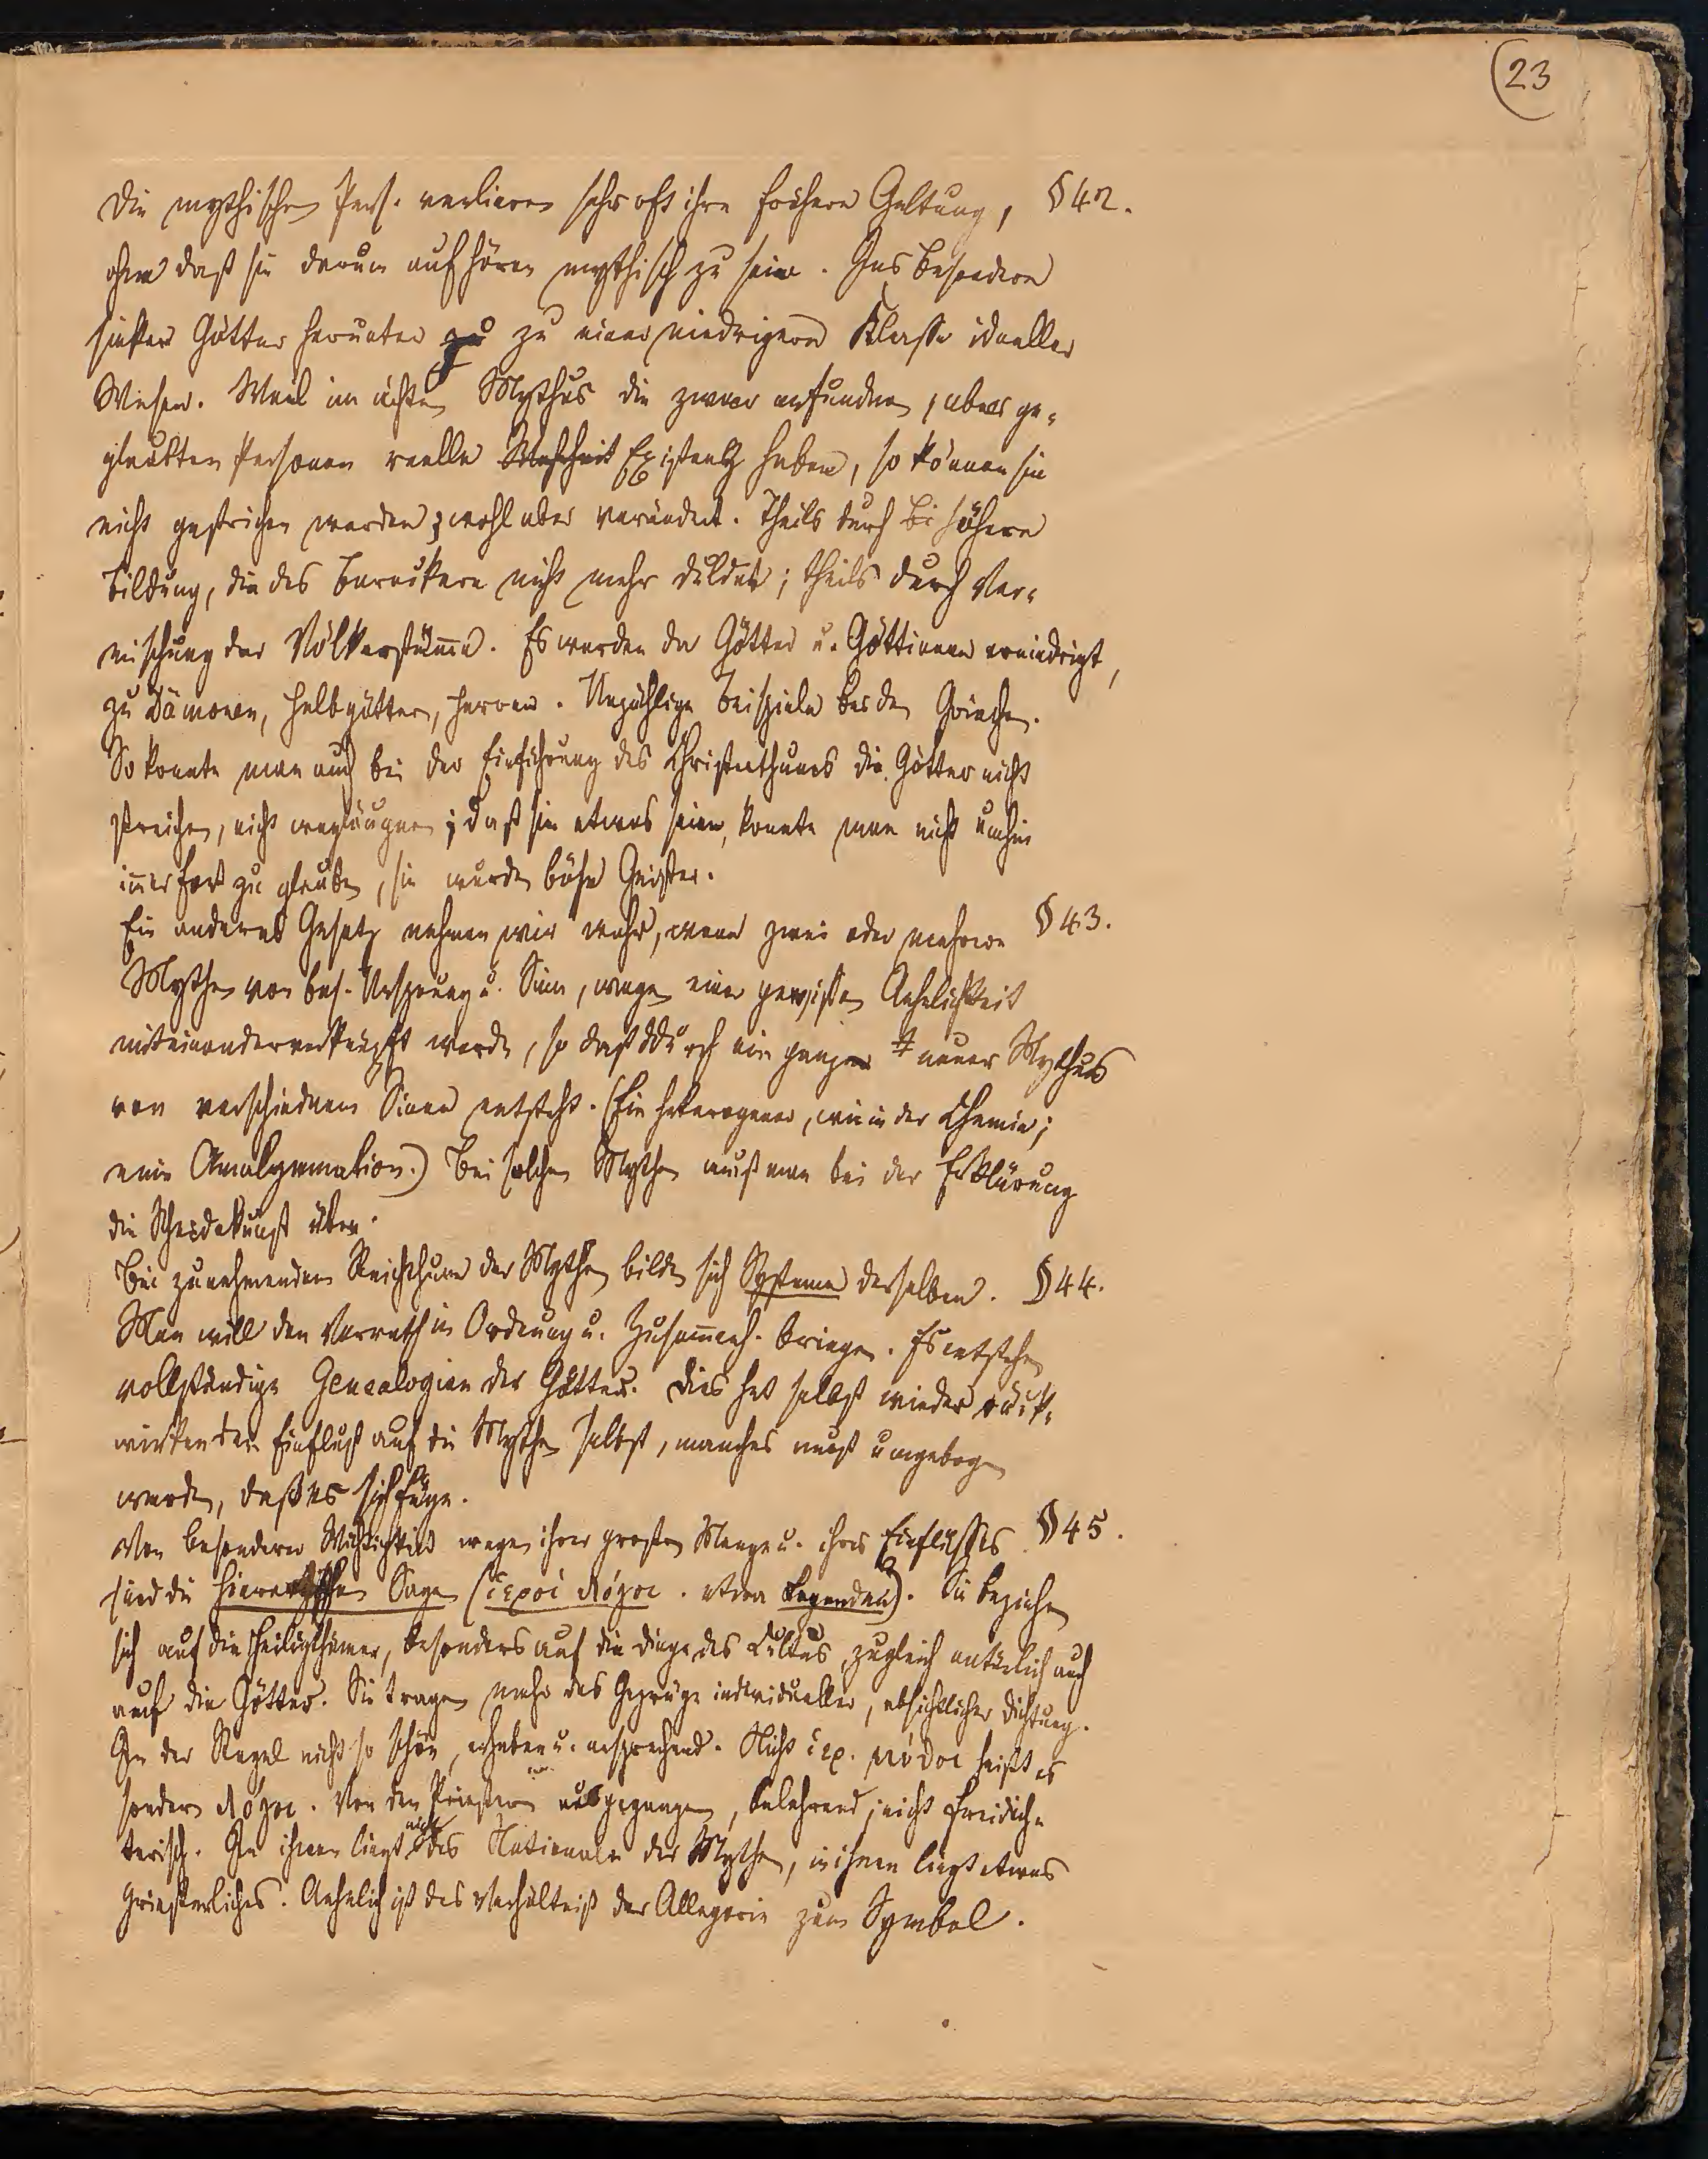 23
Die mythischen Pers. verlieren sehr oft ihre frühere Geltung, §42.
ohne daß sie darum aufhören mythisch zu sein. Insbesondere
sinken Götter herunter zu zu einer niedrigern Klasse ideeller
Wesen. Weil im ächten Mythus die zwar erfundnen, aber ge-
glaubten Personen reelle Wahrheit Existenz haben, so können sie
nicht gestrichen werden; wohl aber verändert. Theils durch bi höhere
Bildung, die das Barockere nicht mehr duldet; theils durch Ver-
mischung der Völkerstäm̅e. Es werden da Götter u. Göttinnen erniedrigt,
zu Dämonen, Halbgöttern, Heroen. Unzählige Beispiele bei den Griechen.
So konnte man auch bei der Einführung des Christenthums die Götter nicht
streichen, nicht wegläugnen; daß sie etwas seien, konnte man nicht umhin
im̅erfort zu glauben, sie wurden böse Geister.
Ein anderes Gesetz nehmen wir wahr, wenn zwei oder mehrere §43.
Mythen von bes. Ursprung u. Sinn, wegen einer gewissen Aehnlichkeit
miteinander verknüpft werden, so daß ddurch ein ganzer neuer Mythus
von verschiednem Sinne entsteht. (Ein heterogener, wie in der Chemie;
eine Amalgamation.) Bei solchen Mythen muß man bei der Erklärung
die Scheidekunst üben.
Bei zunehmendem Reichthum der Mythen bilden sich Systeme derselben. §44.
Man will den Vorrath in Ordnung u. Zusam̅enh. bringen. Es entstehen
vollständige Genealogien der Götter. Dies hat selbst wieder rück-
wirkenden Einfluß auf die Mythen selbst, manches muß umgebogen
werden, daß es sich füge.
Von besonderer Wichtigkeit wegen ihrer großen Menge u. ihres Einflußes §45.
sind die hieratischen Sagen (ἱεροὶ λόγοι. etwa Legenden). Sie beziehen
sich auf die Heiligthümer, besonders auf die Dinge des Cultus, zugleich natürlich auch
auf die Götter. Sie tragen mehr das Gepräge individueller, absichtlicher Dichtung.
In der Regel nicht so schön, erhaben u. ansprechend. Nicht ἱερ. μύθοι heißt es
sondern λόγοι. Von den Priestern ausgegangen, belehrend, nicht freidich-
terisch. In ihnen liegt nicht das Nationale der Mythen, in ihnen liegt etwas
Priesterliches. Aehnlich ist das Verhältniß der Allegorie zum Symbol.